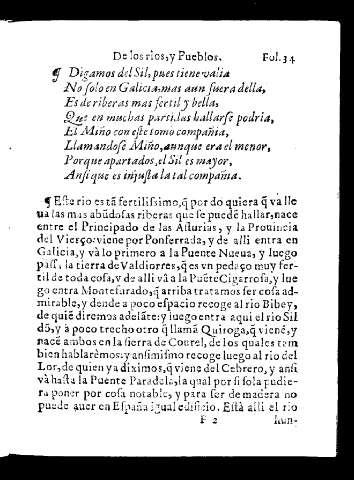 De los rios, y Pueblos. Fol. 34
¶ Digamos del Sil, pues tiene valia
No solo en Galicia, mas aun fuera della,
Es de riberas mas fertil y bella,
Que en muchas partidas hallarse podria,
El Miño con este tomo compañia,
Llamandose Miño, aunque era el menor,
Porque apartados, el Sil es mayor,
Ansi que es injusta la tal compañia.
¶ Este rio es tã fertilissimo, q̃ por do quiera q̃ vá lle
ua las mas abũdosas riberas que se puedẽ hallar, nace
entre el Principado de las Asturias, y la Prouincia
del Vierço: viene por Ponferrada, y de alli entra en
Galicia, y và lo primero a la Puente Nueua, y luego
passa la tierra de Valdiorres, q̃ es vn pedaço muy fer-
til de toda cosa, y de alli vá a la Puẽte Cigarrosa, y lue
go entra Montefurado, q̃ arriba tratamos ser cosa ad-
mirable, y dende a poco espacio recoge al rio Bibey,
de quiẽ diremos adelãte: y luego entra aqui el rio Sil
dõ, y à poco trecho otro q̃ llamã Quiroga, q̃ vienẽ, y
nacẽ ambos en la sierra de Courel, de los quales tam
bien hablarẽmos: y ansimismo recoge luego al rio del
Lor, de quien ya diximos, q̃ viene del Cebrero, y ansi
và hasta la Puente Paradela, la qual por si sola pudie-
ra poner por cosa notable, y para ser de madera no
puede auer en España igual edificio. Està alli el rio
F 2 hun-